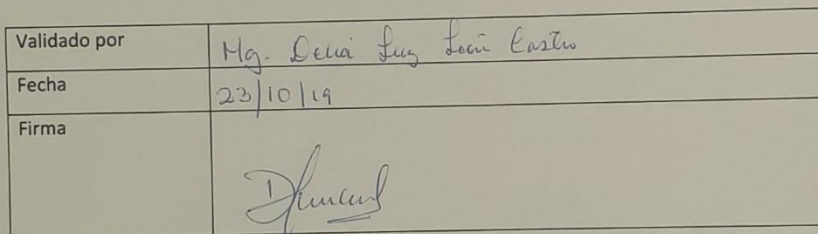 Validado por Mg. Delia Luz León Castro
Fecha 23/10/19
Firma